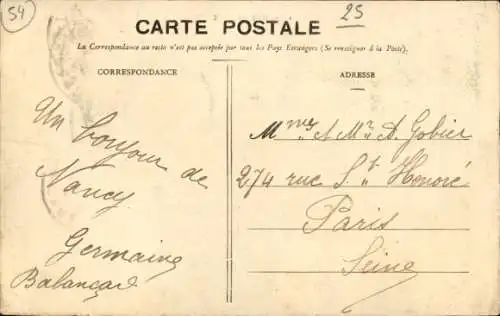 54
25
CARTE POSTALE
La Correspondance au recto n'est pas acceptée par tous les Pays Étrangers (Se renseigner à la Poste).
CORRESPONDANCE
ADRESSE
Un bonjour de
Nancy
Germaine
Balançard
Mme et Mr A. Gobier
274 rue St Honoré
Paris
Seine